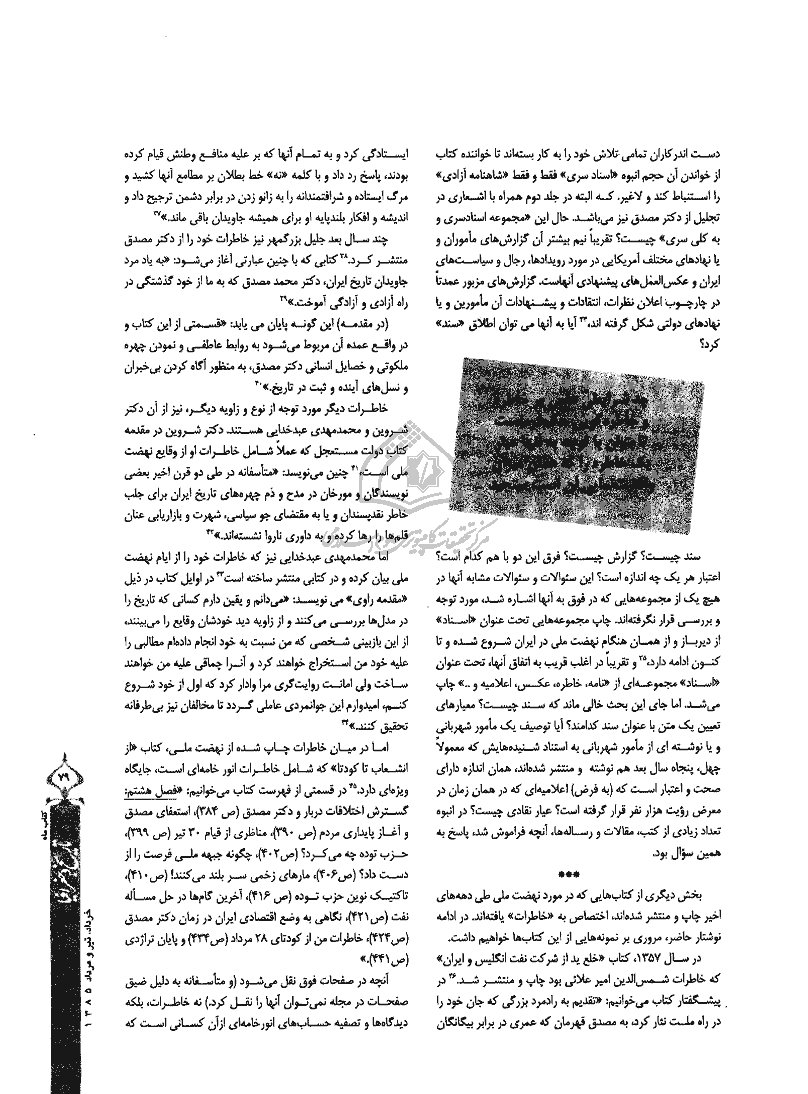 دست اندرکاران تمامی تلاش خود را به کار بسته‌اند تا خواننده کتاب
از خواندن آن حجم انبوه «اسناد سری» فقط و فقط «شاهنامه آزادی»
را استنباط کند و لاغیر. کـه البته در جلد دوم همراه با اشعاری در
تجلیل از دکتر مصدق نیز می‌باشد. حال این «مجموعه اسنادسری و
به کلی سری» چیست؟ تقریباً نیم بیشتر آن گزارش‌های مأموران و
یا نهادهای مختلف آمریکایی در مورد رویدادها، رجال و سیاست‌های
ایران و عکس‌العمل‌های پیشنهادی آنهاست. گزارش‌های مزبور عمدتاً
در چارچـوب اعلان نظرات، انتقادات و پیشـنهادات آن مأمورین و یا
نهادهای دولتی شکل گرفته اند،۲۳ آیا به آنها می توان اطلاق «سند»
کرد؟
سند چیست؟ گزارش چیست؟ فرق این دو با هم کدام است؟
اعتبار هر یک چه اندازه است؟ این سئوالات و سئوالات مشابه آنها در
هیچ یک از مجموعه‌هایی که در فوق به آنها اشـاره شـد، مورد توجه
و بررسی قرار نگرفته‌اند. چاپ مجموعه‌هایی تحت عنوان «اسـناد»
از دیربـاز و از همـان هنگام نهضت ملی در ایران شـروع شـده و تا
کنـون ادامه دارد،۲۵ و تقریباً در اغلب قریب به اتفاق آنها، تحت عنوان
«اسـناد» مجموعـه‌ای از «نامه، خاطره، عکـس، اعلامیه و ..» چاپ
می‌شـد. اما جای این بحث خالی ماند که سـند چیسـت؟ معیارهای
تعیین یک متن با عنوان سند کدامند؟ آیا توصیف یک مأمور شهربانی
و یا نوشـته ای از مأمور شهربانی به استناد شـنیده‌هایش که معمولاً
چهل، پنجاه سال بعد هم نوشته و منتشر شده‌اند، همان اندازه دارای
صحت و اعتبار اسـت که (به فرض) اعلامیه‌ای که در همان زمان در
معرض رؤیت هزار نفر قرار گرفته است؟ عیار نقادی چیست؟ در انبوه
تعداد زیادی از کتب، مقالات و رساله‌ها، آنچه فراموش شد، پاسخ به
همین سؤال بود.
***
بخش دیگری از کتاب‌هایی که در مورد نهضت ملی طی دهه‌های
اخیر چاپ و منتشر شده‌اند، اختصاص به «خاطرات» یافته‌اند. در ادامه
نوشتار حاضر، مروری بر نمونه‌هایی از این کتاب‌ها خواهیم داشت.
در سـال ۱۳۵۷، کتاب «خلع ید از شرکت نفت انگلیس و ایران»
که خاطرات شـمس‌الدین امیر علائی بود چاپ و منتشـر شـد.۲۶ در
پیشـگفتار کتاب می‌خوانیم: «تقدیم به رادمرد بزرگی که جان خود را
در راه ملـت نثار کرد، به مصدق قهرمان که عمری در برابر بیگانگان
ایسـتادگی کرد و به تمـام آنها که بر علیه منافـع وطنش قیام کرده
بودند، پاسخ رد داد و با کلمه «نه» خط بطلان بر مطامع آنها کشید و
مرگ ایستاده و شرافتمندانه را به زانو زدن در برابر دشمن ترجیح داد و
اندیشه و افکار بلندپایه او برای همیشه جاویدان باقی ماند.»۲۷
چند سـال بعد جلیل بزرگمهر نیز خاطرات خود را از دکتر مصدق
منتشـر کـرد.۲۸ کتابی که با چنین عبارتی آغاز می‌شـود: «به یاد مرد
جاویدان تاریخ ایران، دکتر محمد مصدق که به ما از خود گذشتگی در
راه آزادی و آزادگی آموخت.»۲۹
(در مقدمـه) این گونـه پایان می یابد: «قسـمتی از این کتاب و
در واقـع عمده آن مربوط می‌شـود به روابط عاطفـی و نمودن چهره
ملکوتی و خصایل انسانی دکتر مصدق، به منظور آگاه کردن بی‌خبران
و نسل‌های آینده و ثبت در تاریخ.»۴۰
خاطـرات دیگر مورد توجه از نوع و زاویه دیگـر، نیز از آن دکتر
شـروین و محمدمهدی عبدخدایی هستند. دکتر شـروین در مقدمه
کتاب دولت مسـتعجل که عملاً شـامل خاطرات او از وقایع نهضت
ملی اسـت،۴۱ چنین می‌نویسد: «متأسـفانه در طی دو قرن اخیر بعضی
نویسندگان و مورخان در مدح و ذم چهره‌های تاریخ ایران برای جلب
خاطر نقدپسندان و یا به مقتضای جو سیاسی، شهرت و بازاریابی عنان
قلم‌ها را رها کرده و به داوری ناروا نشسته‌اند.»۴۲
اما محمدمهدی عبدخدایی نیز که خاطرات خود را از ایام نهضت
ملی بیان کرده و در کتابی منتشر ساخته است۴۳ در اوایل کتاب در ذیل
«مقدمه راوی» می نویسـد: «می‌دانم و یقین دارم کسانی که تاریخ را
در مدل‌ها بررسی می‌کنند و از زاویه دید خودشان وقایع را می‌بینند،
از این بازبینی شخصی که من نسبت به خود انجام داده‌ام مطالبی را
علیه خود من اسـتخراج خواهند کرد و آنـرا چماقی علیه من خواهند
سـاخت ولی امانت روایت‌گری مرا وادار کرد که اول از خود شـروع
کنـم، امیدوارم این جوانمردی عاملی گـردد تا مخالفان نیز بی‌طرفانه
تحقیق کنند.»۴۴
امـا در میـان خاطرات چـاپ شـده از نهضت ملـی، کتاب «از
انشـعاب تا کودتا» که شـامل خاطرات انور خامه‌ای است، جایگاه
ویژه‌ای دارد.۴۵ در قسـمتی از فهرسـت کتاب می‌خوانیم: «فصل هشتم:
گسـترش اختلافات دربار و دکتر مصدق (ص ۳۸۴)، استعفای مصدق
و آغـاز پایداری مردم (ص ۳۹۰)، مناظری از قیام ۳۰ تیر (ص ۳۹۹)،
حزب توده چه می‌کـرد؟ (ص۴۰۲)، چگونه جبهه ملـی فرصت را از
دسـت داد؟ (ص۴۰۶)، مارهای زخمی سـر بلند می‌کنند! (ص۴۱۰)،
تاکتیـک نوین حزب تـوده (ص ۴۱۶)، آخرین گام‌ها در حل مسـأله
نفت (ص۴۲۱)، نگاهی به وضع اقتصادی ایران در زمان دکتر مصدق
(ص۴۲۴)، خاطرات من از کودتای ۲۸ مرداد (ص۴۳۴) و پایان تراژدی
(ص۴۴۱).»
آنچه در صفحات فوق نقل می‌شـود (و متأسـفانه به دلیل ضیق
صفحـات در مجله نمی‌تـوان آنها را نقـل کرد.) نه خاطـرات، بلکه
دیدگاه‌ها و تصفیه حسـاب‌های انورخامه‌ای ازآن کسـانی اسـت که
۷۹
کتاب ماه
خرداد، تیر و مرداد ۱۳۸۵